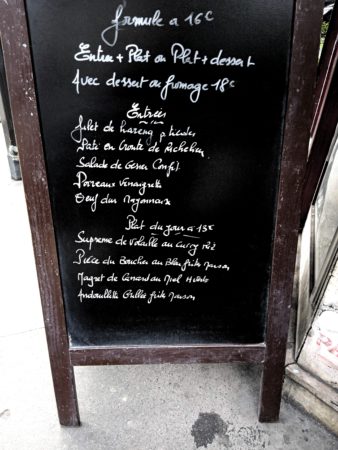 formule a 16€
Entree + Plat ou Plat + dessert
Avec dessert ou fromage 18€
Entrées
filet de hareng p tiedes
Paté en Croute de Richelieu
Salade de Gesier Confit
Poireaux Vinaigrette
Oeuf dur Mayonnaise
Plat du jour a 13€
Supreme de Volaille au Curry Riz
Pièce du Boucher au Bleu frites maison
Magret de Canard au Miel
Andouillette Grillée frites maison